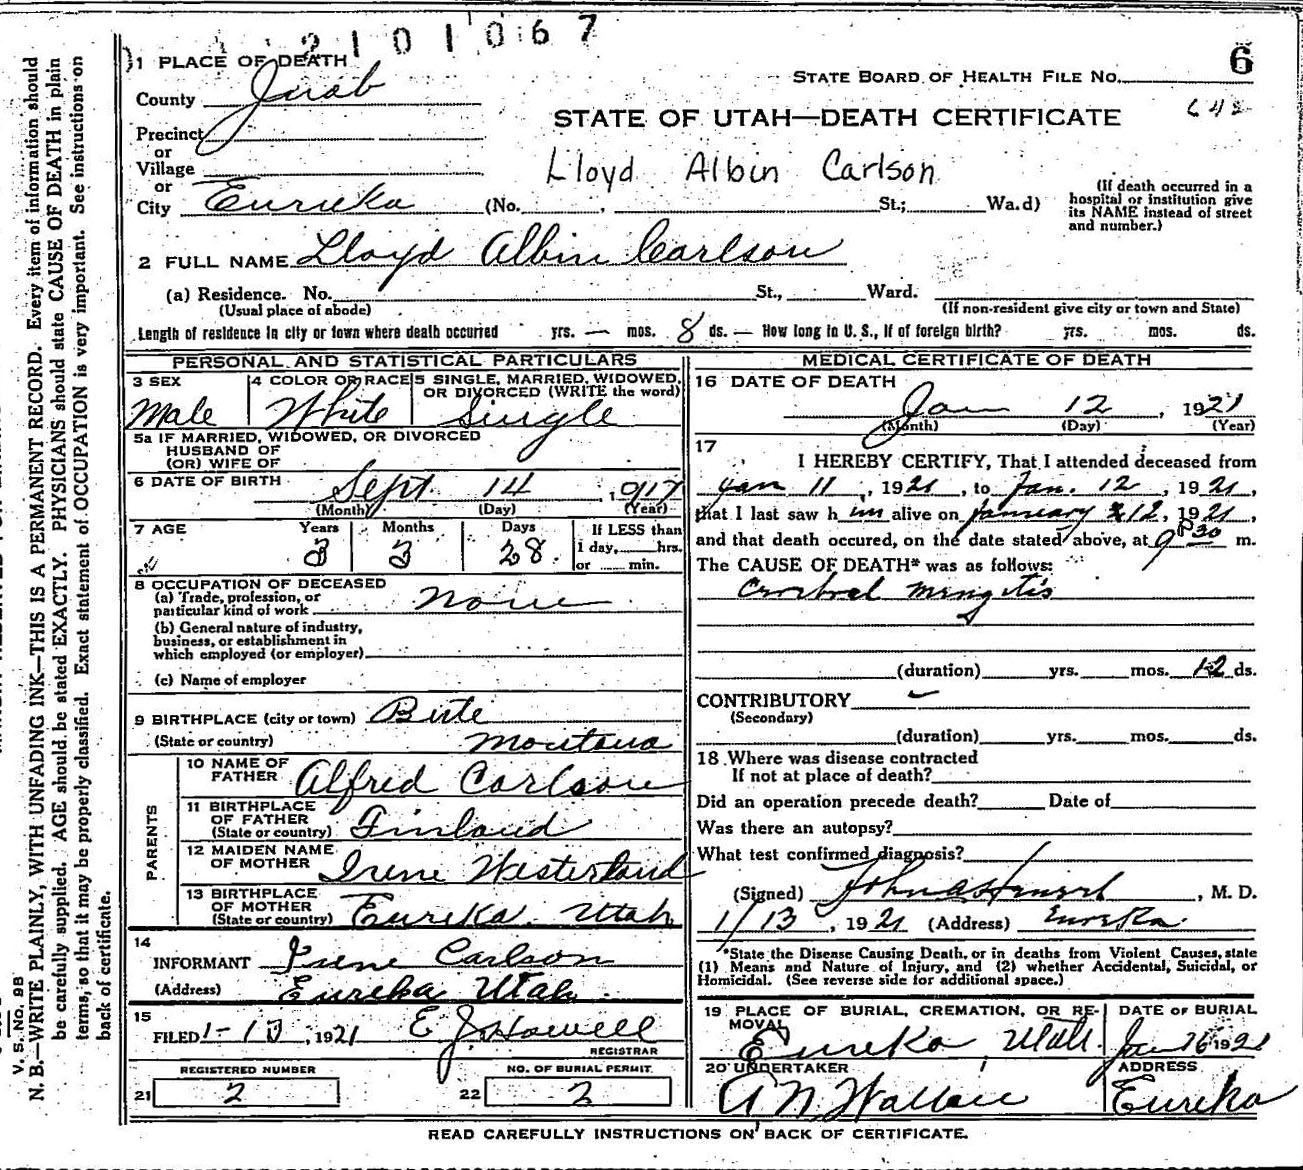 2101067
1 PLACE OF DEATH
STATE BOARD OF HEALTH FILE NO. 6
County Juab
642
STATE OF UTAH—DEATH CERTIFICATE
Precinct
or
Village
Lloyd Albin Carlson
or
City Eureka (No. , St.; Wa.d)
(If death occurred in a hospital or institution give its NAME instead of street and number.)
2 FULL NAME Lloyd Albin Carlson
(a) Residence. No. St., Ward.
(Usual place of abode) (If non-resident give city or town and State)
Length of residence in city or town where death occurred yrs. — mos. 8 ds. — How long in U. S., if of foreign birth? yrs. mos. ds.
PERSONAL AND STATISTICAL PARTICULARS
3 SEX
Male
4 COLOR OR RACE
White
5 SINGLE, MARRIED, WIDOWED, OR DIVORCED (WRITE the word)
Single
5a IF MARRIED, WIDOWED, OR DIVORCED
HUSBAND OF
(OR) WIFE OF
6 DATE OF BIRTH Sept 14, 1917
(Month) (Day) (Year)
7 AGE Years Months Days If LESS than
3 3 28 1 day, hrs.
or min.
8 OCCUPATION OF DECEASED
(a) Trade, profession, or
particular kind of work None
(b) General nature of industry,
business, or establishment in
which employed (or employer)
(c) Name of employer
9 BIRTHPLACE (city or town) Bute
(State or country) Montana
PARENTS
10 NAME OF FATHER Alfred Carlson
11 BIRTHPLACE OF FATHER
(State or country) Finland
12 MAIDEN NAME OF MOTHER Irene Westerlund
13 BIRTHPLACE OF MOTHER
(State or country) Eureka Utah
14
INFORMANT Irene Carlson
(Address) Eureka Utah
15
FILED 1-13, 1921 E J Howell
REGISTRAR
REGISTERED NUMBER
21 2
NO. OF BURIAL PERMIT
22 2
MEDICAL CERTIFICATE OF DEATH
16 DATE OF DEATH
Jan 12, 1921
(Month) (Day) (Year)
17
I HEREBY CERTIFY, That I attended deceased from
Jan 11, 1921, to Jan. 12, 1921,
that I last saw h im alive on January 12, 1921,
and that death occured, on the date stated above, at 9 30 P m.
The CAUSE OF DEATH* was as follows:
Cerebral mengitis
(duration) yrs. mos. 12 ds.
CONTRIBUTORY
(Secondary)
(duration) yrs. mos. ds.
18 Where was disease contracted
If not at place of death?
Did an operation precede death? Date of
Was there an autopsy?
What test confirmed diagnosis?
(Signed) John , M. D.
1/13, 1921 (Address) Eureka
*State the Disease Causing Death, or in deaths from Violent Causes, state
(1) Means and Nature of Injury, and (2) whether Accidental, Suicidal, or
Homicidal. (See reverse side for additional space.)
19 PLACE OF BURIAL, CREMATION, OR REMOVAL
Eureka, Utah.
DATE OF BURIAL
Jan 16 1921
20 UNDERTAKER
A N Wallace
ADDRESS
Eureka
READ CAREFULLY INSTRUCTIONS ON BACK OF CERTIFICATE.
V. S. No. 9B
N. B.—WRITE PLAINLY, WITH UNFADING INK—THIS IS A PERMANENT RECORD. Every item of information should
be carefully supplied. AGE should be stated EXACTLY. PHYSICIANS should state CAUSE OF DEATH in plain
terms, so that it may be properly classified. Exact statement of OCCUPATION is very important. See instructions on
back of certificate.